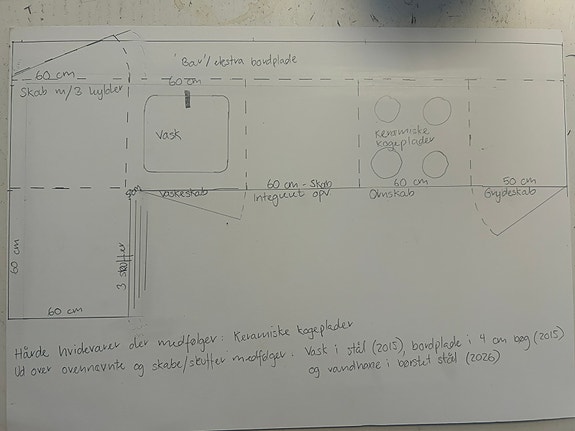 'Bar'/ekstra bordplade
60 cm
60 cm
Skab m/3 hylder
Vask
Keramiske
kogeplader
60 cm - Skab
60 cm
50 cm
Vaskeskab
Integreret opv.
Ovnskab
Grydeskab
60 cm
3 skuffer
60 cm
Hårde hvidevarer der medfølger: Keramiske kogeplader
Ud over ovennævnte og skabe/skuffer medfølger: Vask i stål (2015), bordplade i 4 cm bøg (2015)
og vandhane i børstet stål (2026)